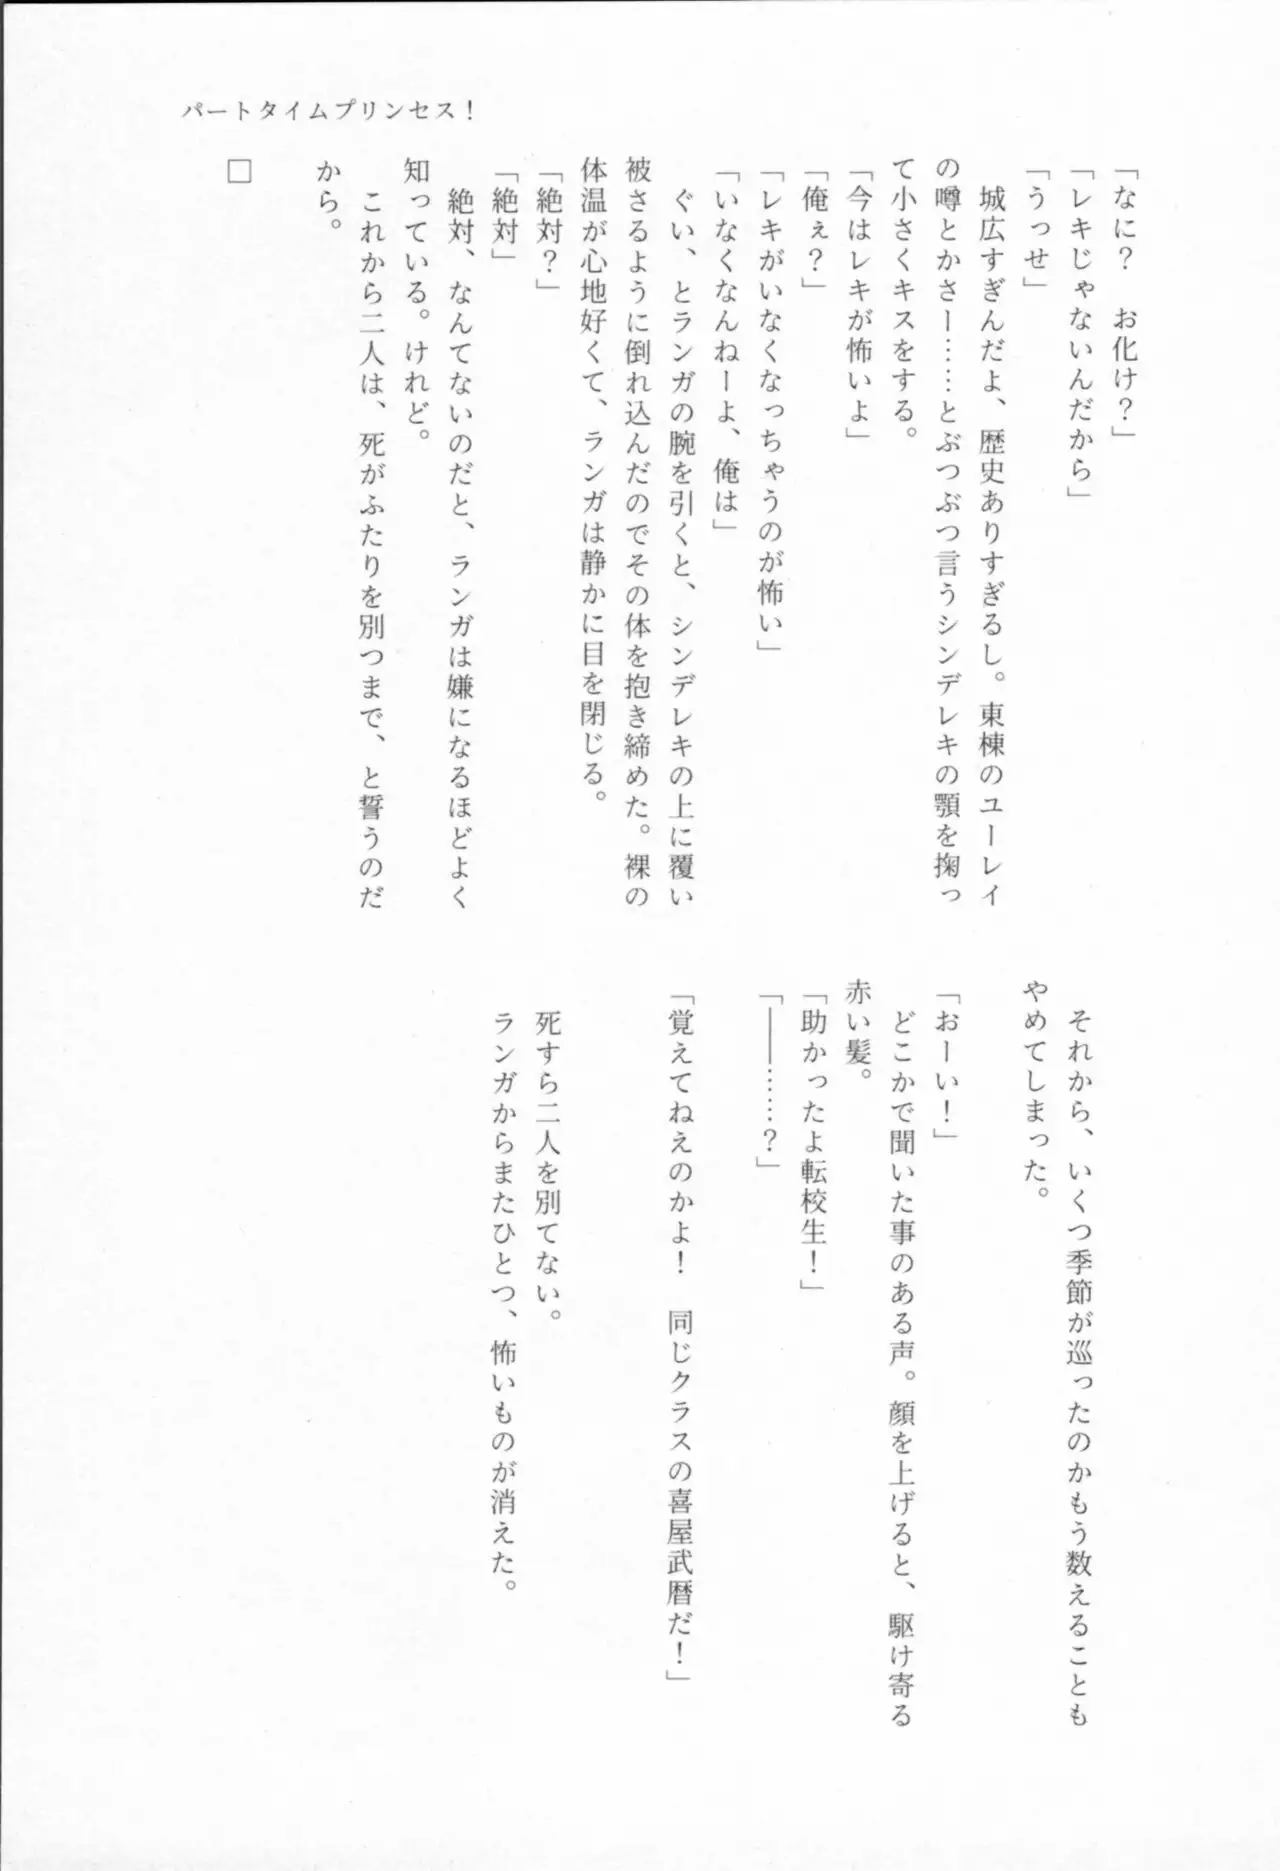 パートタイムプリンセス！
「なに？　お化け？」
「レキじゃないんだから」
「うっせ」
　城広すぎんだよ、歴史ありすぎるし。東棟のユーレイ
の噂とかさー……とぶつぶつ言うシンデレキの顎を掬っ
て小さくキスをする。
「今はレキが怖いよ」
「俺ぇ？」
「レキがいなくなっちゃうのが怖い」
「いなくなんねーよ、俺は」
　ぐい、とランガの腕を引くと、シンデレキの上に覆い
被さるように倒れ込んだのでその体を抱き締めた。裸の
体温が心地好くて、ランガは静かに目を閉じる。
「絶対？」
「絶対」
　絶対、なんてないのだと、ランガは嫌になるほどよく
知っている。けれど。
　これから二人は、死がふたりを別つまで、と誓うのだ
から。
□
　それから、いくつ季節が巡ったのかもう数えることも
やめてしまった。
「おーい！」
　どこかで聞いた事のある声。顔を上げると、駆け寄る
赤い髪。
「助かったよ転校生！」
「――……？」
「覚えてねえのかよ！　同じクラスの喜屋武暦だ！」
　死すら二人を別てない。
　ランガからまたひとつ、怖いものが消えた。